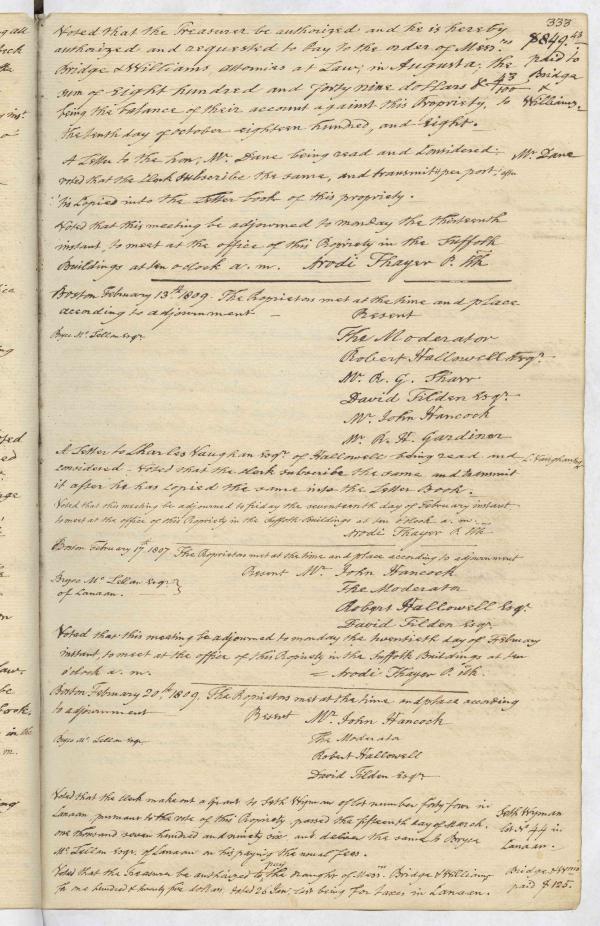 333
Voted that the Treasurer be authorized and he is hereby
authorized and requested to pay to the order of Messrs.
Bridge & Williams, attornies at Law, in Augusta, the
sum of Eight hundred and forty nine dollars & 43/100
being the balance of their account against this Propriety, to
the tenth day of october eighteen hundred, and Eight.
$849.43
paid to
Bridge
&
Williams.
A Letter to the hon. Mr. Dane being read and Considered:
voted that the Clerk subscribe the same, and transmit per post, after
'tis Copied into the Letter book of this propriety.
Mr. Dane
Voted that this meeting be adjourned to monday the thirteenth
instant, to meet at the office of this Propriety in the Suffolk
Buildings at ten o clock a. m. Arodi Thayer P. Clk
Boston February 13th. 1809. The Proprietors met at the time and place
according to adjournment
Present
Bryce Mc. Lellan Esqr.
The Moderator
Robert Hallowell Esqr.
Mr. R. G. Shaw
David Tilden Esqr.
Mr. John Hancock
Mr. R. H. Gardiner
A Letter to Charles Vaughan Esqr. of Hallowell being read and
considered - Voted that the clerk subscribe the same and transmit
it after he has copied the same into the Letter Book.
C. Vaughan Esqr
Voted that this meeting be adjourned to friday the seventeenth day of February instant
to meet at the office of this Propriety in the Suffolk Buildings at ten o'clock a. m.
Arodi Thayer P. Clk
Boston February 17th. 1807 The Proprietors met at the time and place according to adjournment
Present Mr. John Hancock
Bryce Mc. Lellan Esqr.
of Canaan.
The Moderator
Robert Hallowell Esqr.
David Tilden Esqr.
Voted that this meeting be adjourned to monday the twentieth day of February
instant, to meet at the office of this Propriety in the Suffolk Buildings at ten
o'clock a. m. = Arodi Thayer P. Clk.
Boston February 20th. 1809. The Proprietors met at the time and place according
to adjournment Present Mr. John Hancock
Bryce Mc. Lellan Esqr.
The Moderator
Robert Hallowell
David Tilden Esqr
Voted that the Clerk make out a Grant to Seth Wyman of lot number forty four in
Canaan, pursuant to the vote of this Propriety, passed the fifteenth day of March.
one thousand seven hundred and ninety one and deliver the same to Bryce
Mc. Lellan Esqr. of Canaan on his paying the usual fees.
Seth Wyman
lot No. 44 in
Canaan.
Voted that the Treasurer be authorized to pay the draught of Messrs. Bridge & Williams
for one hundred & twenty five dollars dated 26 Jan. last being for taxes in Canaan.
Bridge & Wms
paid $125.